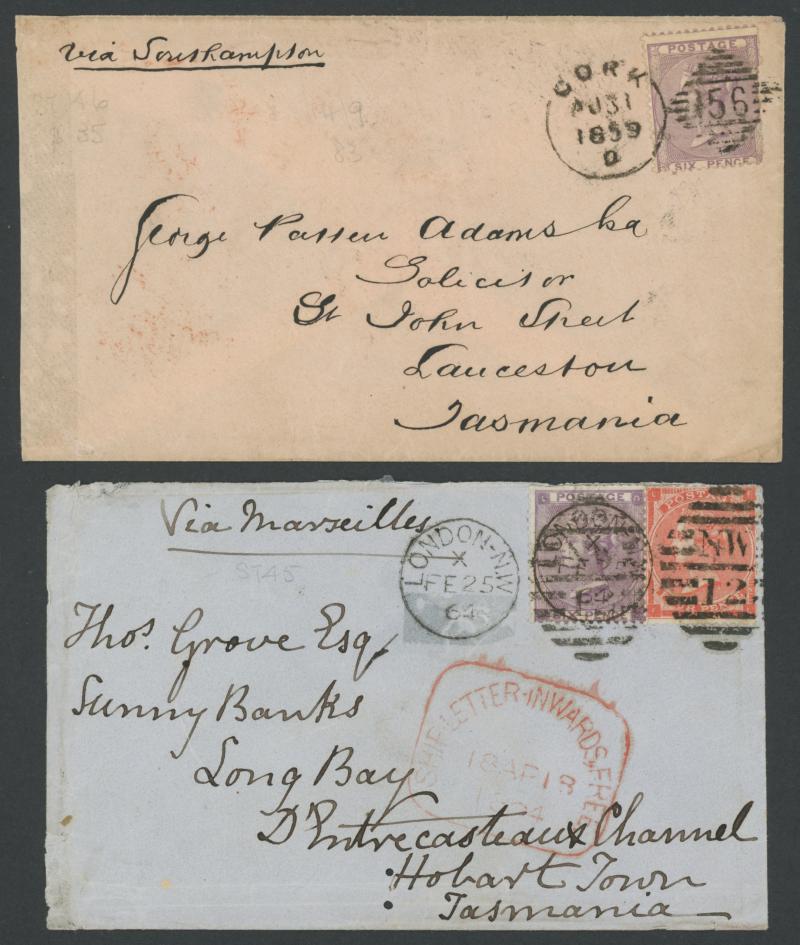 via Southampton
CORK
AU 31
1859
D
POSTAGE
156
SIX PENCE
George Patten Adams
Solicitor
St John Street
Launceston
Tasmania
Via Marseilles
ST45
LONDON-N.W
X
FE 25
64
POSTAGE
LONDON
X
64
POSTAGE
NW
12
Thos. Grove Esq
Sunny Banks
Long Bay
D'Entrecasteaux Channel
Hobart Town
Tasmania
SHIP-LETTER-INWARDS, FREE
18 AP 18